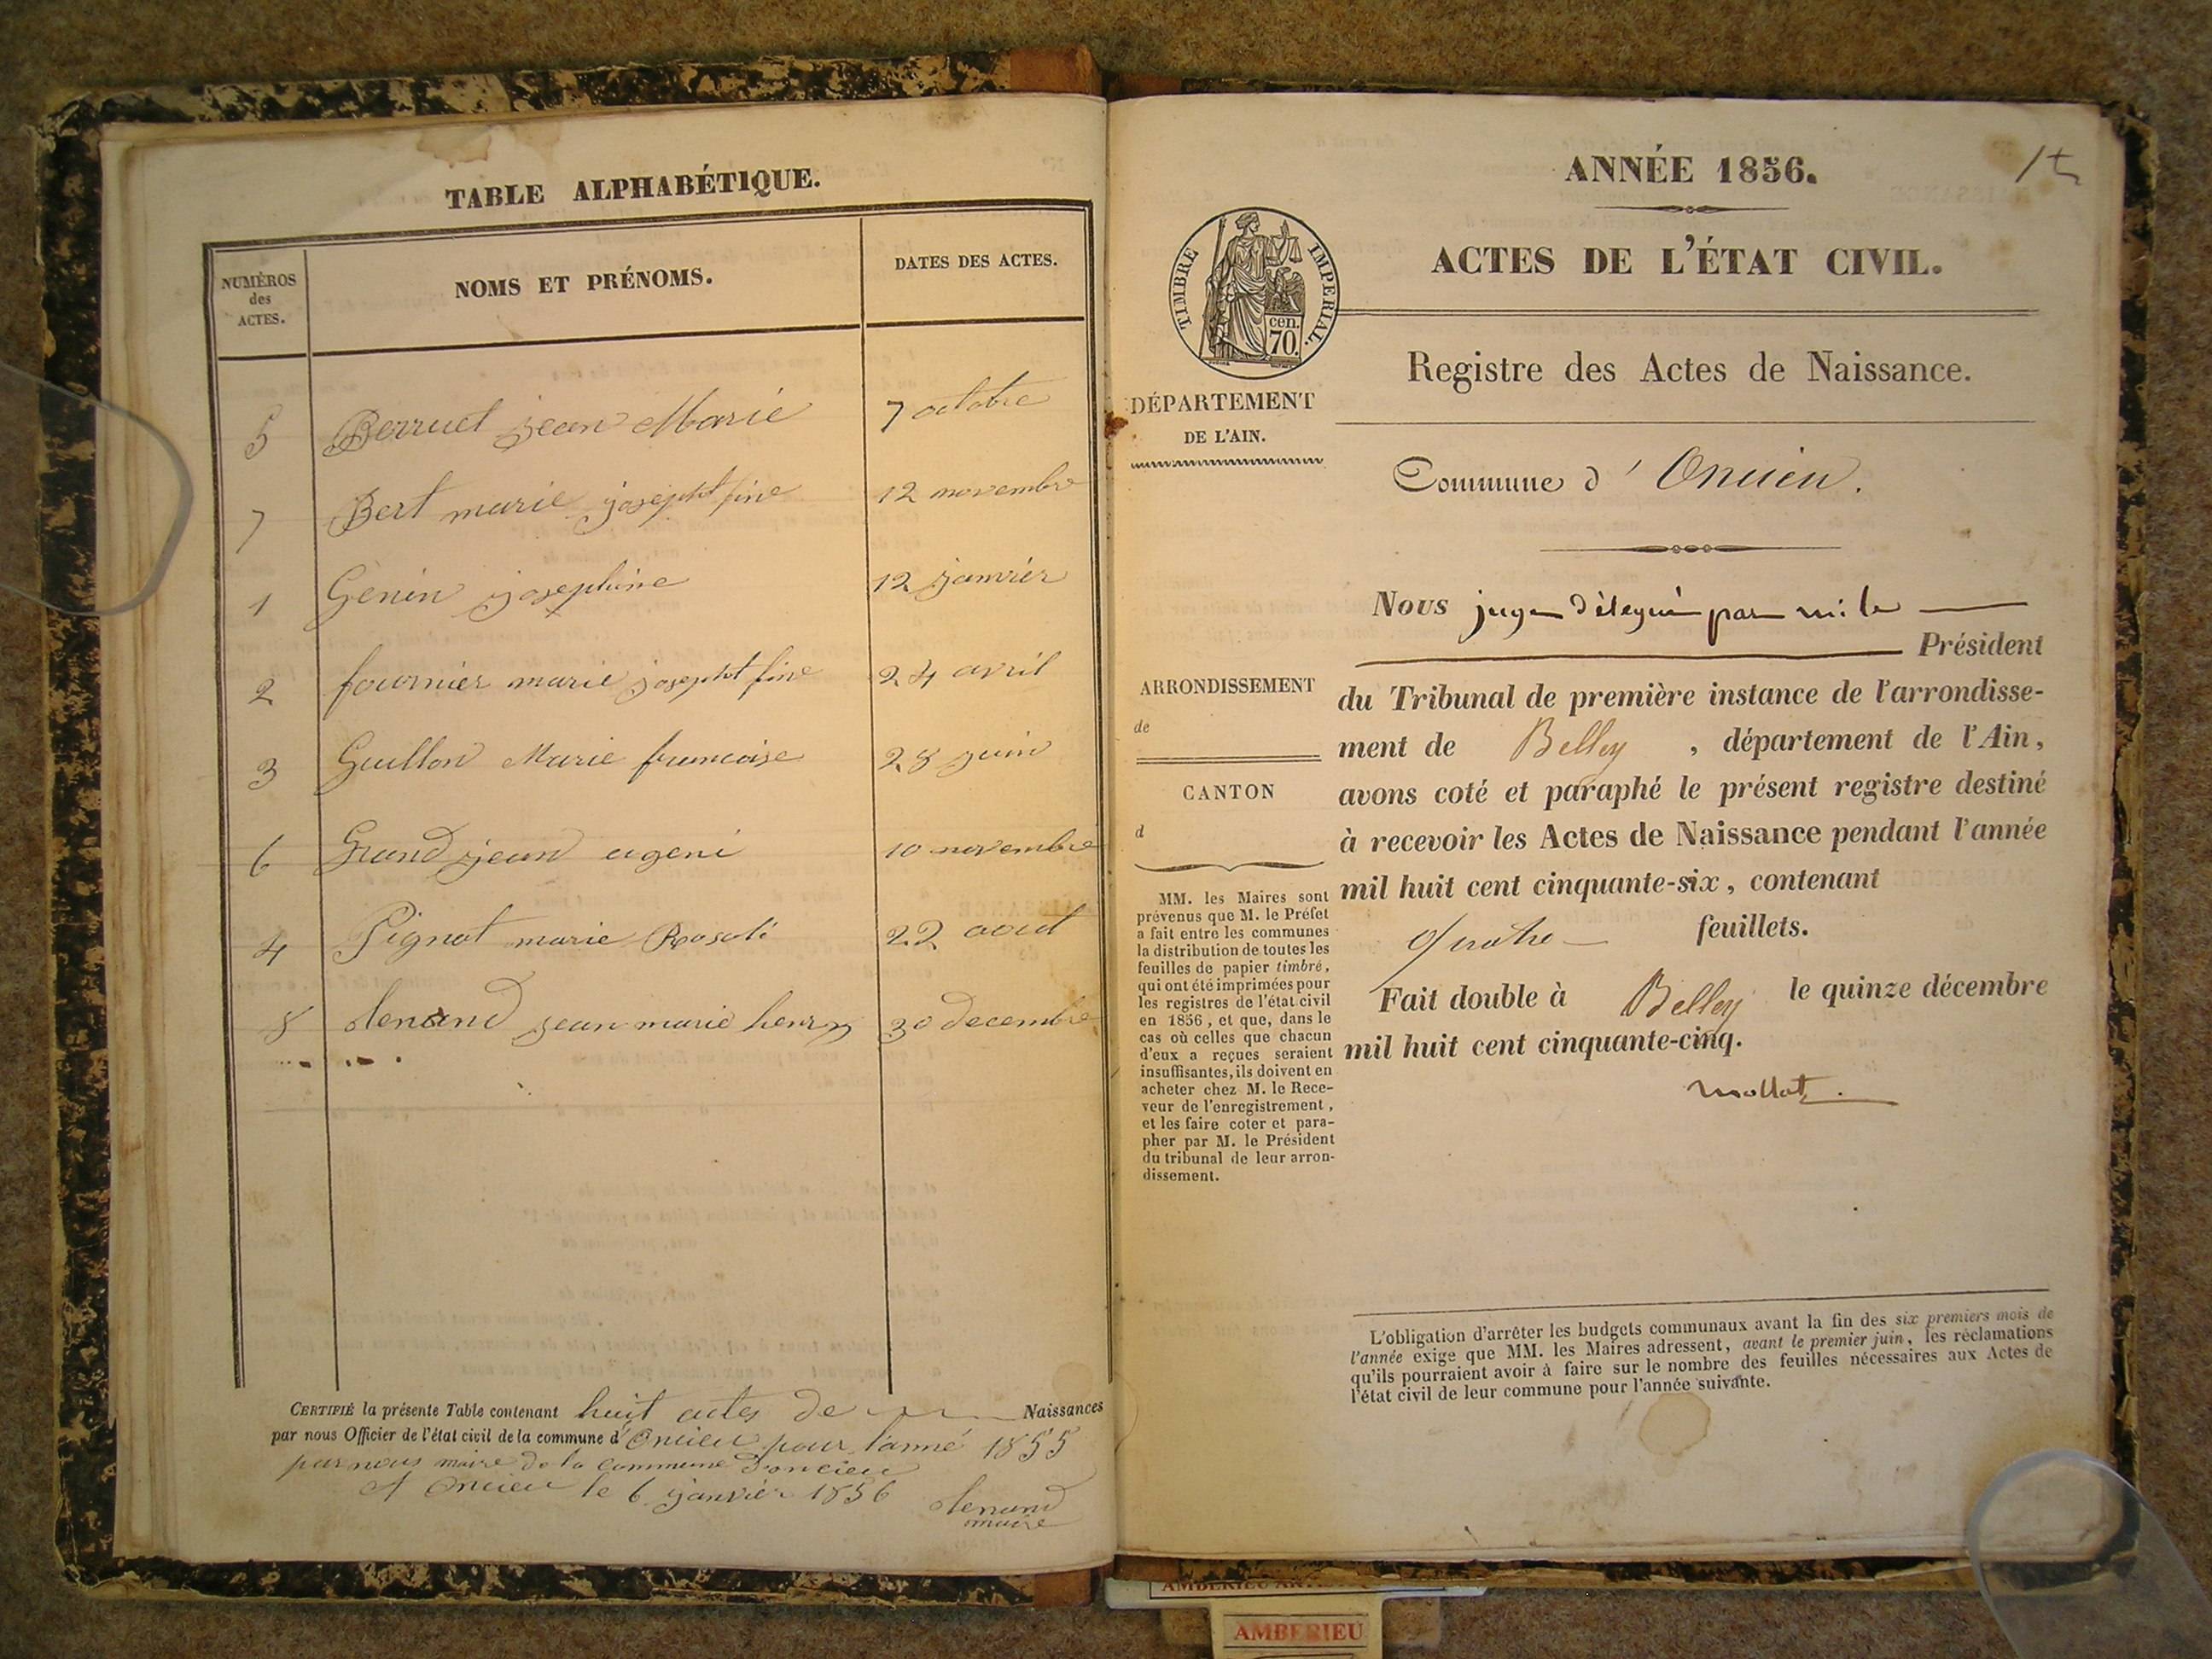 TABLE ALPHABÉTIQUE.
NUMÉROS des ACTES.
NOMS ET PRÉNOMS.
DATES DES ACTES.
5 Berruet jean Marie 7 octobre
7 Bert marie josepht fine 12 novembre
1 Genin josephine 12 janvier
2 fournier marie josepht fine 24 avril
3 Guillon Marie francoise 28 juin
6 Grand jean ugeni 10 novembre
4 Pignot marie Rosali 22 aout
8 denand jean marie henry 30 decembre
CERTIFIÉ la présente Table contenant huit actes de Naissances
par nous Officier de l'état civil de la commune d'Oncieu pour l'anné 1855
par nous maire de la commune d'oncieu
A Oncieu le 6 janvier 1856 denand
maire
1
ANNÉE 1856.
ACTES DE L'ÉTAT CIVIL.
TIMBRE IMPERIAL.
cen.
70.
Registre des Actes de Naissance.
DÉPARTEMENT
DE L'AIN.
Commune d'Oncieu.
Nous juge délégué par mr le
Président
du Tribunal de première instance de l'arrondisse-
ment de Belley, département de l'Ain,
avons coté et paraphé le présent registre destiné
à recevoir les Actes de Naissance pendant l'année
mil huit cent cinquante-six, contenant
quatre feuillets.
Fait double à Belley le quinze décembre
mil huit cent cinquante-cinq.
Mollot
ARRONDISSEMENT
de
CANTON
d
MM. les Maires sont
prévenus que M. le Préfet
a fait entre les communes
la distribution de toutes les
feuilles de papier timbré,
qui ont été imprimées pour
les registres de l'état civil
en 1856, et que, dans le
cas où celles que chacun
d'eux a reçues seraient
insuffisantes, ils doivent en
acheter chez M. le Rece-
veur de l'enregistrement,
et les faire coter et para-
pher par M. le Président
du tribunal de leur arron-
dissement.
L'obligation d'arrêter les budgets communaux avant la fin des six premiers mois de
l'année exige que MM. les Maires adressent, avant le premier juin, les réclamations
qu'ils pourraient avoir à faire sur le nombre des feuilles nécessaires aux Actes de
l'état civil de leur commune pour l'année suivante.
AMBERIEU
AMBERIEU